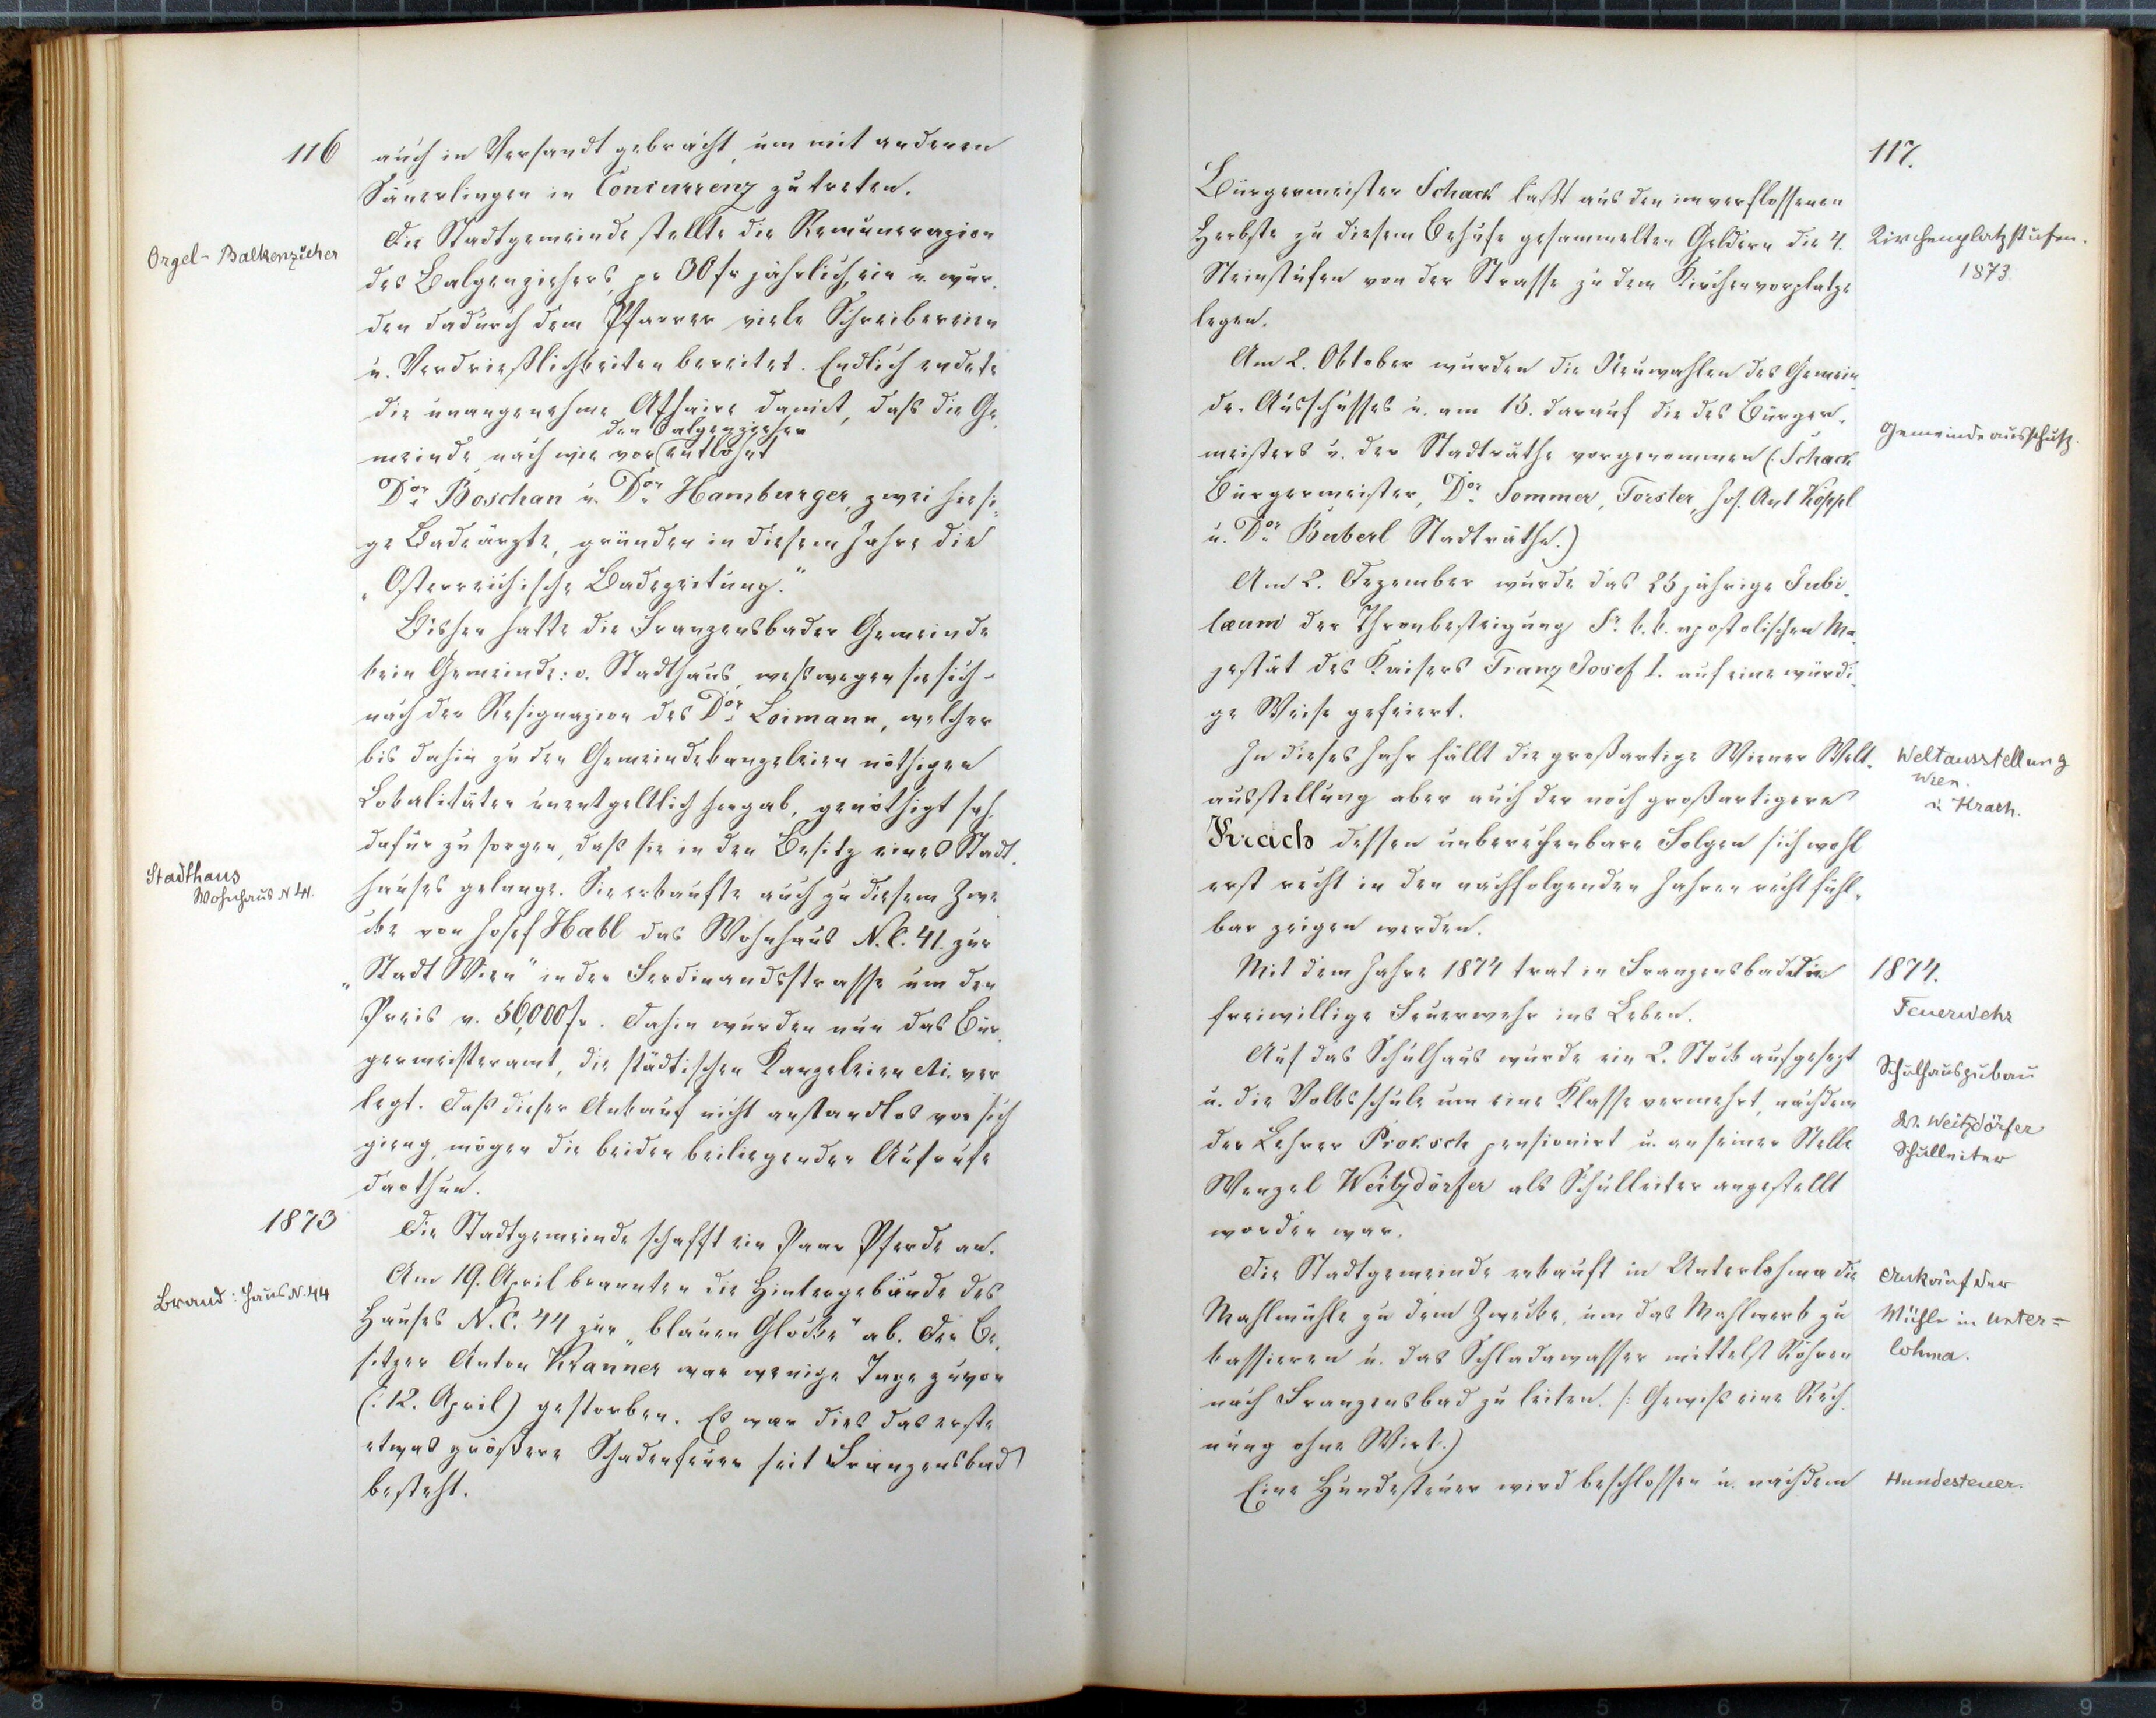 116
auch in Versandt gebracht, um mit anderen
Säuerlingen in Concurrenz zu treten.
Orgel-Balkenzieher
Die Stadtgemeinde stellte die Remunerazion
des Balgenziehers, pr 30 fr jährlich, ein u. wur-
den dadurch dem Pfarrer viele Schreibereien
u. Verdrießlichkeiten bereitet. Endlich endete
die unangenehme Affaire damit, daß die Ge-
den Balgenzieher
meinde nach wie vor entlohnt
Dor Boschan u. Dor Hamburger, zwei hiesi-
ge Badeärzte, gründen in diesem Jahre die
„Österreichische Badezeitung."
Bisher hatte die Franzensbader Gemeinde
kein Gemeinde: o. Stadthaus, weßwegen sie sich
nach der Resignazion des Dor Loimann, welcher
bis dahin zu den Gemeindekanzeleien nöthigen
Lokalitäten unentgeltlich hergab, genöthigt sah,
dafür zu sorgen, daß sie in den Besitz eines Stadt-
Stadthaus
Wohnhaus N 41.
hauses gelange. Sie erkaufte auch zu diesem Zwe-
cke von Josef Habl das Wohnhaus N.C. 41. zur
„Stadt Wien" in der Ferdinandsstrasse um den
Preis v. 56,000 fr. Dahin wurden nun das Bür-
germeisteramt, die städtischen Kanzeleien etc. ver
legt. Daß dieser Ankauf nicht anstandlos vor sich
gieng, mögen die beiden beiliegenden Aufrufe
darthun.
1873
Die Stadtgemeinde schafft ein Paar Pferde an.
Brand: Haus N. 44
Am 19. April brannten die Hintergebäude des
Hauses N.C. 44 zur „blauen Glocke" ab. Der Be-
sitzer Anton Kranner war wenige Tage zuvor
(: 12. April) gestorben. Es war dies das erste
etwas größere Schadenfeuer seit Franzensbad
besteht.
117.
Bürgermeister Schack laßt aus den im verflossenen
Herbste zu diesem Behufe gesammelten Geldern die 4.
Kirchenplatzstufen.
1873.
Steinstufen von der Strasse zu dem Kirchenvorplatze
legen.
Am 2. Oktober wurden die Neuwahlen des Gemein-
de-Ausschusses u. am 15. darauf die des Bürger-
Gemeindeausschuß.
meisters u. der Stadträthe vorgenommen (: Schack
Bürgermeister, Dor Sommer, Forster, Jos. Ant Köppl
u. Dor Buberl Stadträthe.)
Am 2. Dezember wurde das 25 jährige Jubi-
læum der Thronbesteigung Sr k.k. apostolischen Ma-
jestät des Kaisers Franz Josef I. auf eine würdi-
ge Weise gefeiert.
In dieses Jahr fällt die großartige Wiener Welt-
Weltausstellung
Wien.
u. Krach.
ausstellung aber auch der noch großartigere
Krach dessen unberechenbare Folgen sich wohl
erst recht in den nachfolgenden Jahren recht fühl-
bar zeigen werden.
Mit dem Jahre 1874 trat in Franzensbad die
1874.
Feuerwehr
freiwillige Feuerwehr ins Leben.
Auf das Schulhaus wurde ein 2. Stock aufgesezt
Schulhauszubau
u. die Volksschule um eine Klasse vermehrt, nachdem
der Lehrer Proksch pensionirt u. an seiner Stelle
W. Weitzdörfer
Schulleiter
Wenzel Weitzdörfer als Schulleiter angestellt
worden war.
Die Stadtgemeinde erkauft in Unterlohma die
Ankauf der
Mühle in Unter=
lohma.
Mahlmühle zu dem Zwecke, um das Mahlwerk zu
kassieren u. das Schladawasser mittelst Röhren
nach Franzensbad zu leiten. (: Gewiß eine Rech-
nung ohne Wirt.)
Eine Hundesteuer wird beschlossen u. nachdem
Hundesteuer.